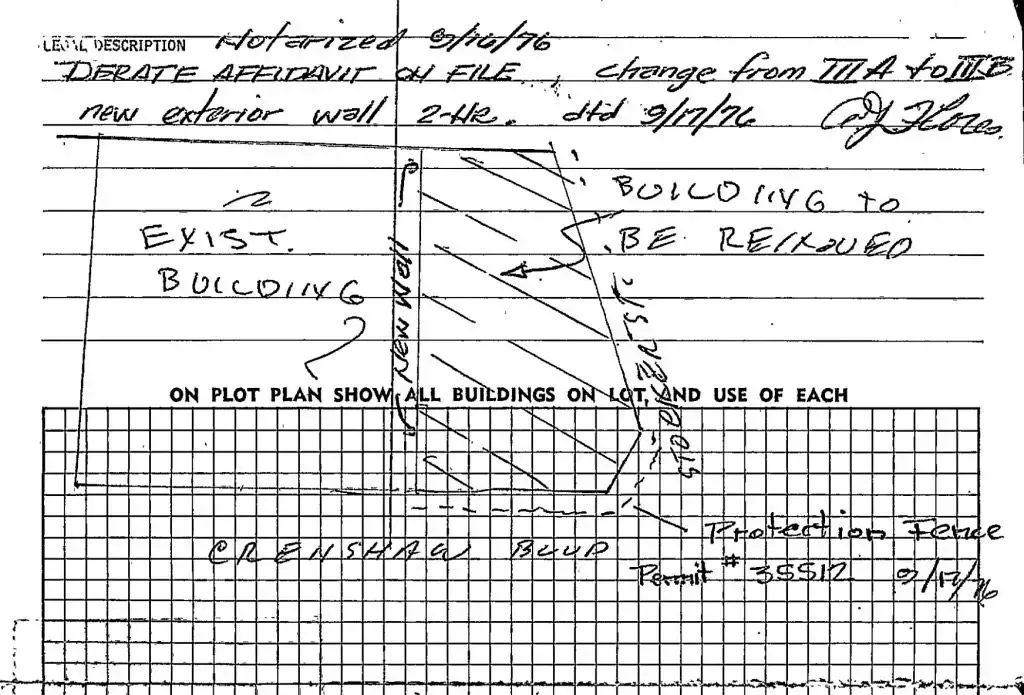 LEGAL DESCRIPTION Notarized 9/16/76
DERATE AFFIDAVIT ON FILE, change from III A to III B
new exterior wall 2-HR. dtd 9/17/76 Flores.
BUILDING TO
BE REMOVED
EXIST.
BUILDING
New Wall
ON PLOT PLAN SHOW ALL BUILDINGS ON LOT, AND USE OF EACH
CRENSHAW BLVD
Protection Fence
Permit # 35512 9/17/76